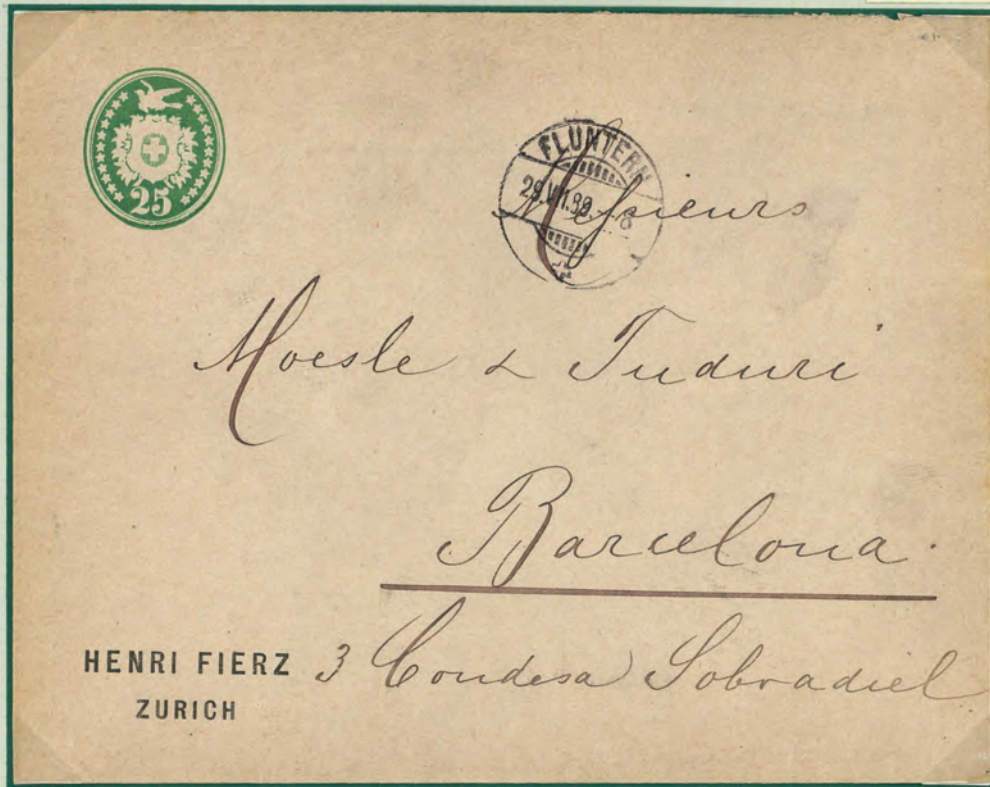 25
FLUNTERN
Messieurs
Moesle & Tuduri
Barcelona.
3 Condesa Sobradiel
HENRI FIERZ
ZURICH